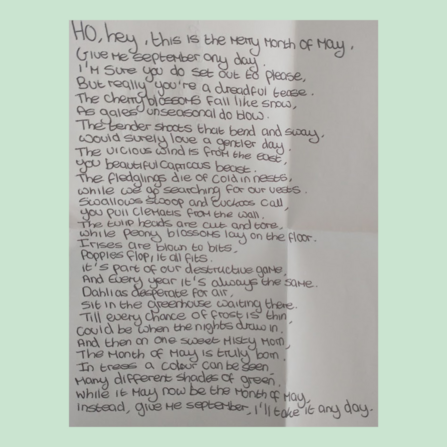 Ho, hey, this is the Merry Month of May,
Give me september any day.
I'm sure you do set out to please,
But really you're a dreadful tease.
The cherry blossoms fall like snow,
As gales unseasonal do blow.
The tender shoots that bend and sway,
Would surely love a gentler day.
The vicious wind is from the east,
you beautiful capricous beast.
The fledglings die of cold in nests,
while we go searching for our vests.
Swallows swoop and cuckoos call,
you pull clematis from the wall.
The tulip heads are cut and torn,
while peony blossoms lay on the floor.
Irises are blown to bits,
Poppies flop, it all fits.
it's part of our destructive game,
And every year it's always the same.
Dahlias desperate for air,
sit in the greenhouse waiting there.
Till every chance of frost is thin,
could be when the nights draw in.
And then on one sweet misty morn,
The Month of May is truly born.
In trees a colour can be seen,
Many different shades of green.
while it May now be the month of May,
instead, give me september, I'll take it any day.